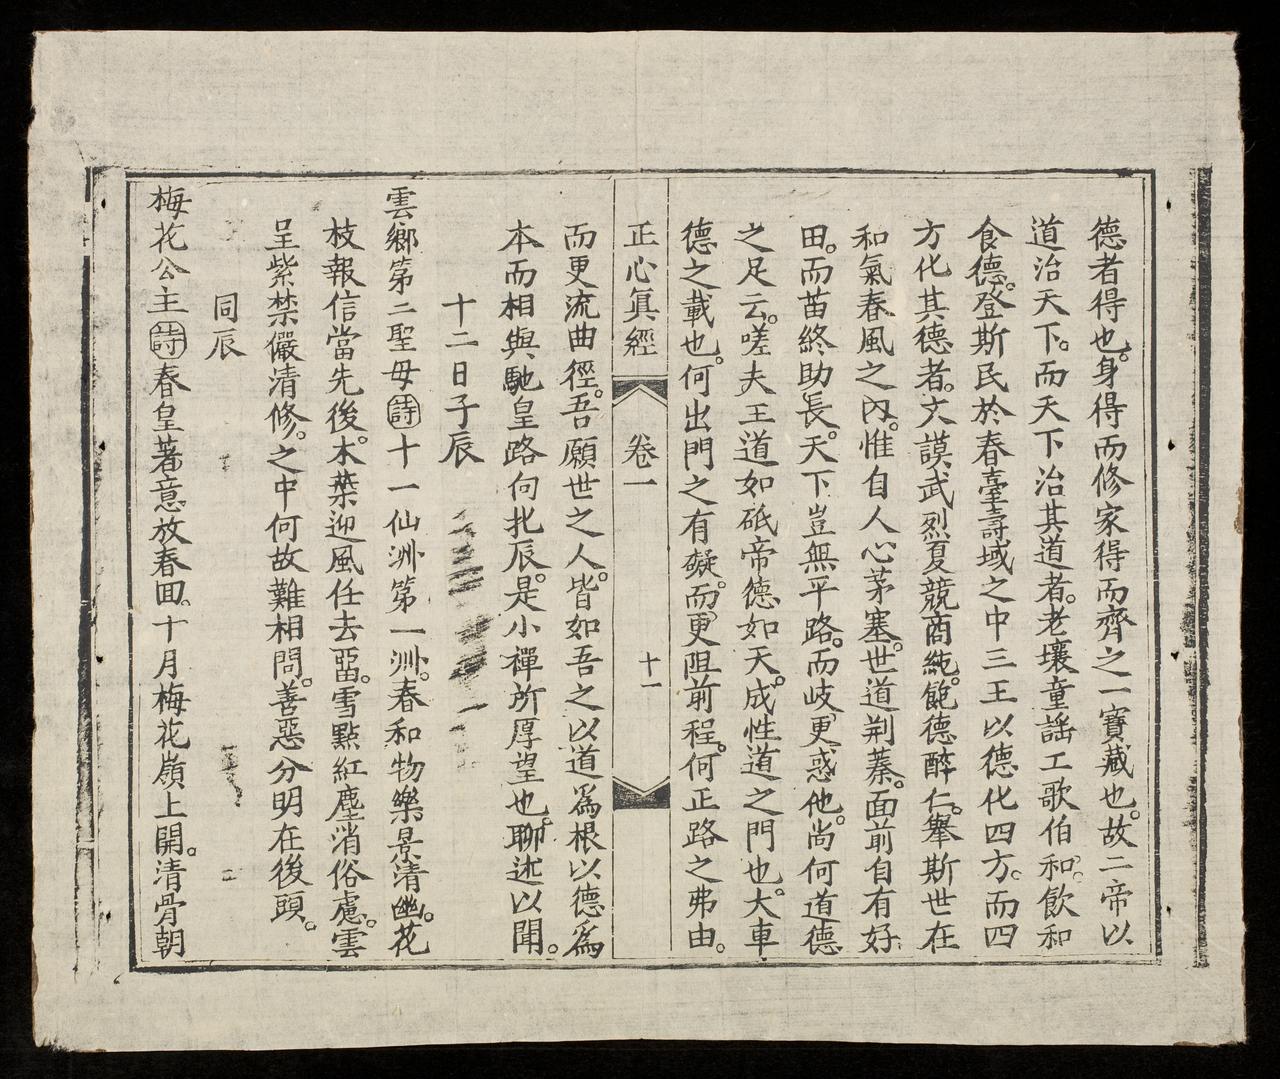 德者得也。身得而修家得而齊之一寶藏也。故二帝以
道治天下。而天下治其道者。老壤童謠工歌伯和。飲和
食德。登斯民於春臺壽域之中三王以德化四方。而四
方化其德者。文謨武烈夏競商純。飽德醉仁。舉斯世在
和氣春風之內。惟自人心茅塞。世道荆蓁。面前自有好
田。而苗終助長。天下豈無平路。而岐更惑他。尚何道德
之足云。嗟夫王道如砥帝德如天。成性道之門也。大車
德之載也。何出門之有礙。而更阻前程。何正路之弗由。
正心眞經 卷一 十一
而更流曲徑。吾願世之人。皆如吾之以道爲根以德爲
本而相與馳皇路向北辰。是小禪所厚望也。聊述以聞。
十二日子辰
雲鄉第二聖母詩十一仙洲第一洲。春和物樂景清幽。花
枝報信當先後。木葉迎風任去畱。雪點紅塵消俗慮。雲
呈紫禁儼清修。之中何故難相問。善惡分明在後頭。
同辰
梅花公主詩春皇著意放春回。十月梅花嶺上開。清骨朝